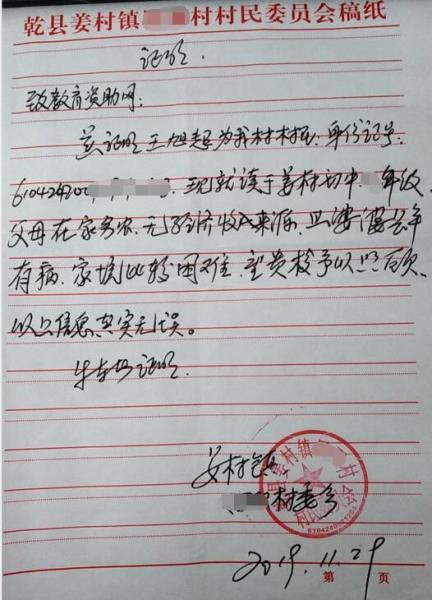 乾县姜村镇 村村民委员会稿纸
证明
致教育资助网:
兹证明王旭超为我村村民,身份证号:
610424200 ,现就读于姜村初中 年级,
父母在家务农,无经济收入来源,且 常年
有病,家境比较困难,望贵校予以照顾,
以上信息真实无误。
特此证明.
姜村镇
村委会
2019.11.29
第 页